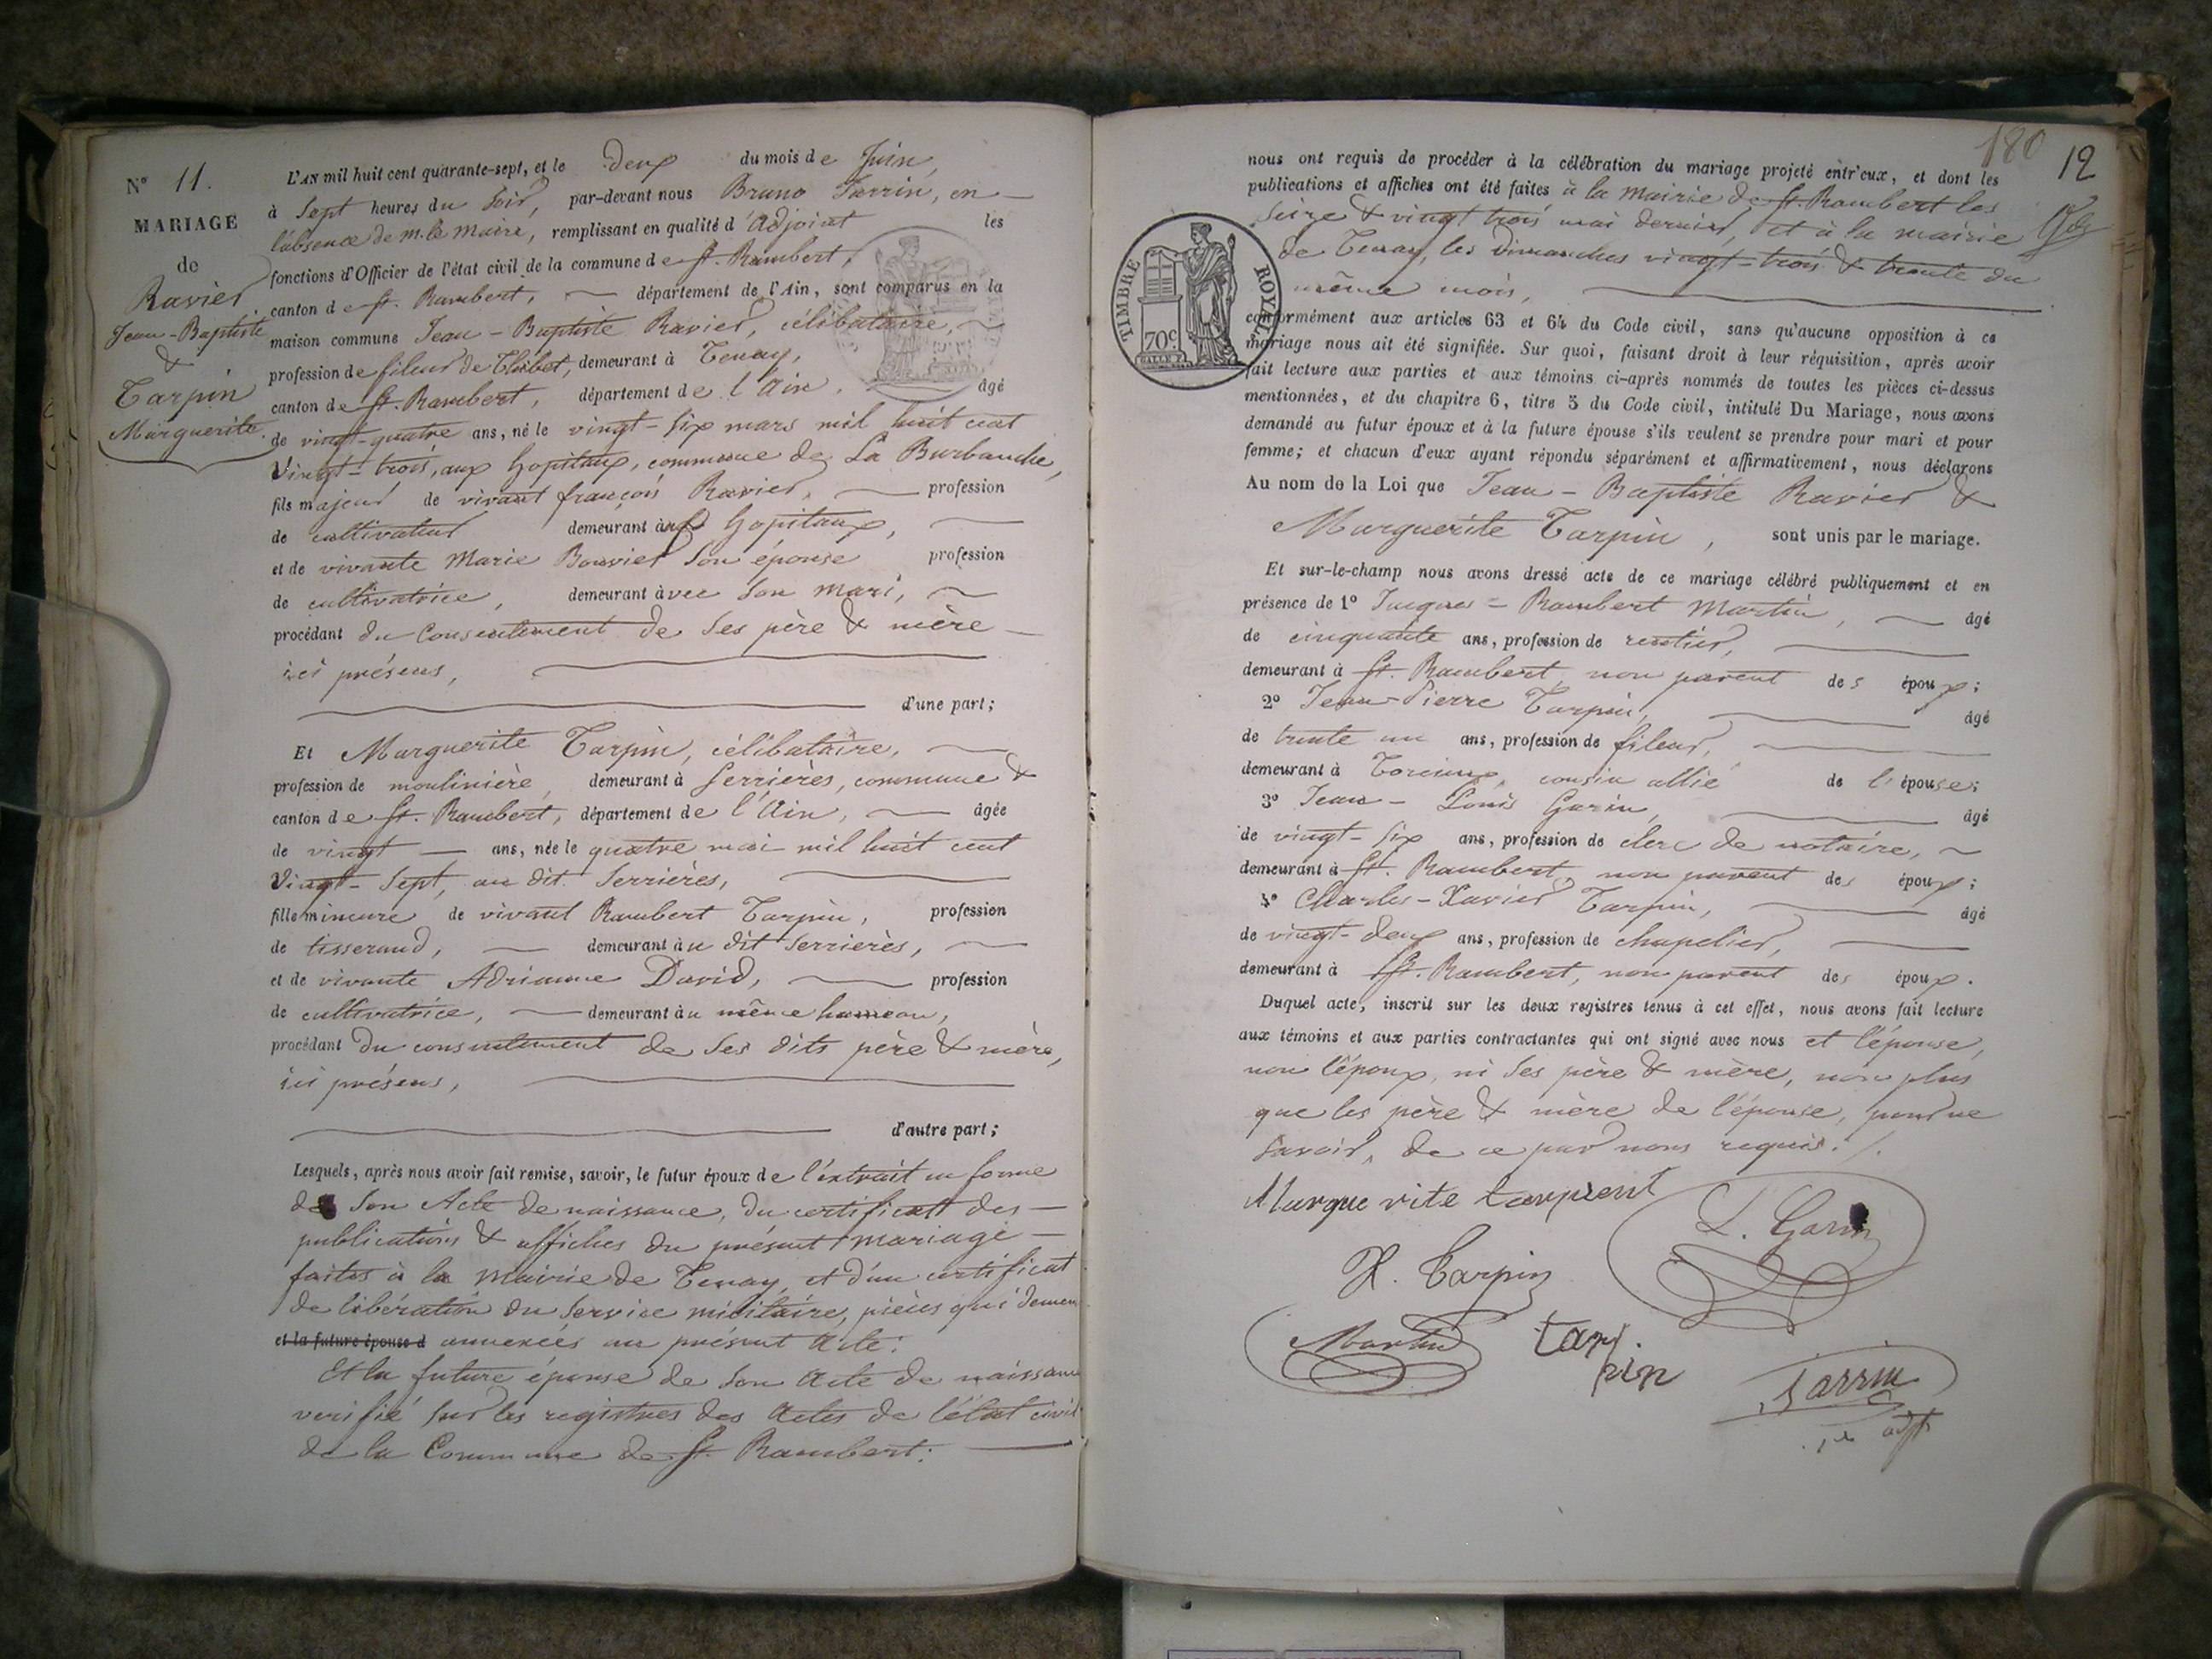 N° 11.
MARIAGE
de
Ravier
Jean-Baptiste
&
Tarpin
Marguerite.
L'AN mil huit cent quarante-sept, et le deux du mois de Juin,
à Sept heures du Soir, par-devant nous Bruno Sarrin, en
l'absence de M. le Maire, remplissant en qualité d'Adjoint les
fonctions d'Officier de l'état civil de la commune de St. Rambert,
canton de St. Rambert, département de l'Ain, sont comparus en la
maison commune Jean-Baptiste Ravier, célibataire,
profession de fileur de Thibet, demeurant à Tenay,
canton de St. Rambert, département de l'Ain, âgé
de vingt-quatre ans, né le vingt-six mars mil huit cent
Vingt-trois, aux hopitaux, commune de La Burbanche,
fils majeur de vivant françois Ravier, profession
de cultivateur demeurant aux hopitaux,
et de vivante Marie Bouvier Son épouse profession
de cultivatrice, demeurant avec Son mari,
procédant du Consentement de Ses père & mère
ici présens,
d'une part;
Et Marguerite Tarpin, célibataire,
profession de moulinière, demeurant à Serrières, commune &
canton de St. Rambert, département de l'Ain, âgée
de vingt ans, née le quatre mai mil huit cent
Vingt-Sept, au dit Serrières,
fille mineure de vivant Rambert Tarpin, profession
de tisserand, demeurant au dit Serrières,
et de vivante Adrianne David, profession
de cultivatrice, demeurant au même hameau,
procédant du consentement de Ses dits père & mère,
ici présens,
d'autre part;
Lesquels, après nous avoir fait remise, savoir, le futur époux de l'extrait en forme
de Son Acte de naissance, du certificat des
publications & affiches du présent mariage
faites à la Mairie de Tenay, et d'un certificat
de libération du Service militaire, pièces qui demeu
et la future épouse d annexées au présent Acte.
Et la future épouse de Son Acte de naissance
verifié sur les registres des Actes de l'état civil
de la Commune de St. Rambert.
180
12
nous ont requis de procéder à la célébration du mariage projeté entr'eux, et dont les
publications et affiches ont été faites à la Mairie de St. Rambert les
Seize & vingt trois mai dernier, et à la mairie
de Tenay, les Dimanches vingt-trois & trente du
même mois,
TIMBRE ROYAL
70c
conformément aux articles 63 et 64 du Code civil, sans qu'aucune opposition à ce
mariage nous ait été signifiée. Sur quoi, faisant droit à leur réquisition, après avoir
fait lecture aux parties et aux témoins ci-après nommés de toutes les pièces ci-dessus
mentionnées, et du chapitre 6, titre 5 du Code civil, intitulé Du Mariage, nous avons
demandé au futur époux et à la future épouse s'ils veulent se prendre pour mari et pour
femme; et chacun d'eux ayant répondu séparément et affirmativement, nous déclarons
Au nom de la Loi que Jean-Baptiste Ravier &
Marguerite Tarpin, sont unis par le mariage.
Et sur-le-champ nous avons dressé acte de ce mariage célébré publiquement et en
présence de 1° Jacques-Rambert Martin, âgé
de cinquante ans, profession de rentier,
demeurant à St. Rambert, non parent des époux;
2° Jean-Pierre Tarpin, âgé
de trente un ans, profession de fileur,
demeurant à Torcieux, cousin allié de l'épouse;
3° Jean-Louis Garin, âgé
de vingt-six ans, profession de clerc de notaire,
demeurant à St. Rambert, non parent des époux;
4° Charles-Xavier Tarpin, âgé
de vingt-deux ans, profession de chapelier,
demeurant à St. Rambert, non parent des époux.
Duquel acte, inscrit sur les deux registres tenus à cet effet, nous avons fait lecture
aux témoins et aux parties contractantes qui ont signé avec nous et l'épouse,
non l'époux, ni Ses père & mère, non plus
que les père & mère de l'épouse, pour ne
Savoir, de ce par nous requis.
Margue rite tarpient
L. Garin
X. Tarpin
Martin
tar
pin
Sarrin
adjt